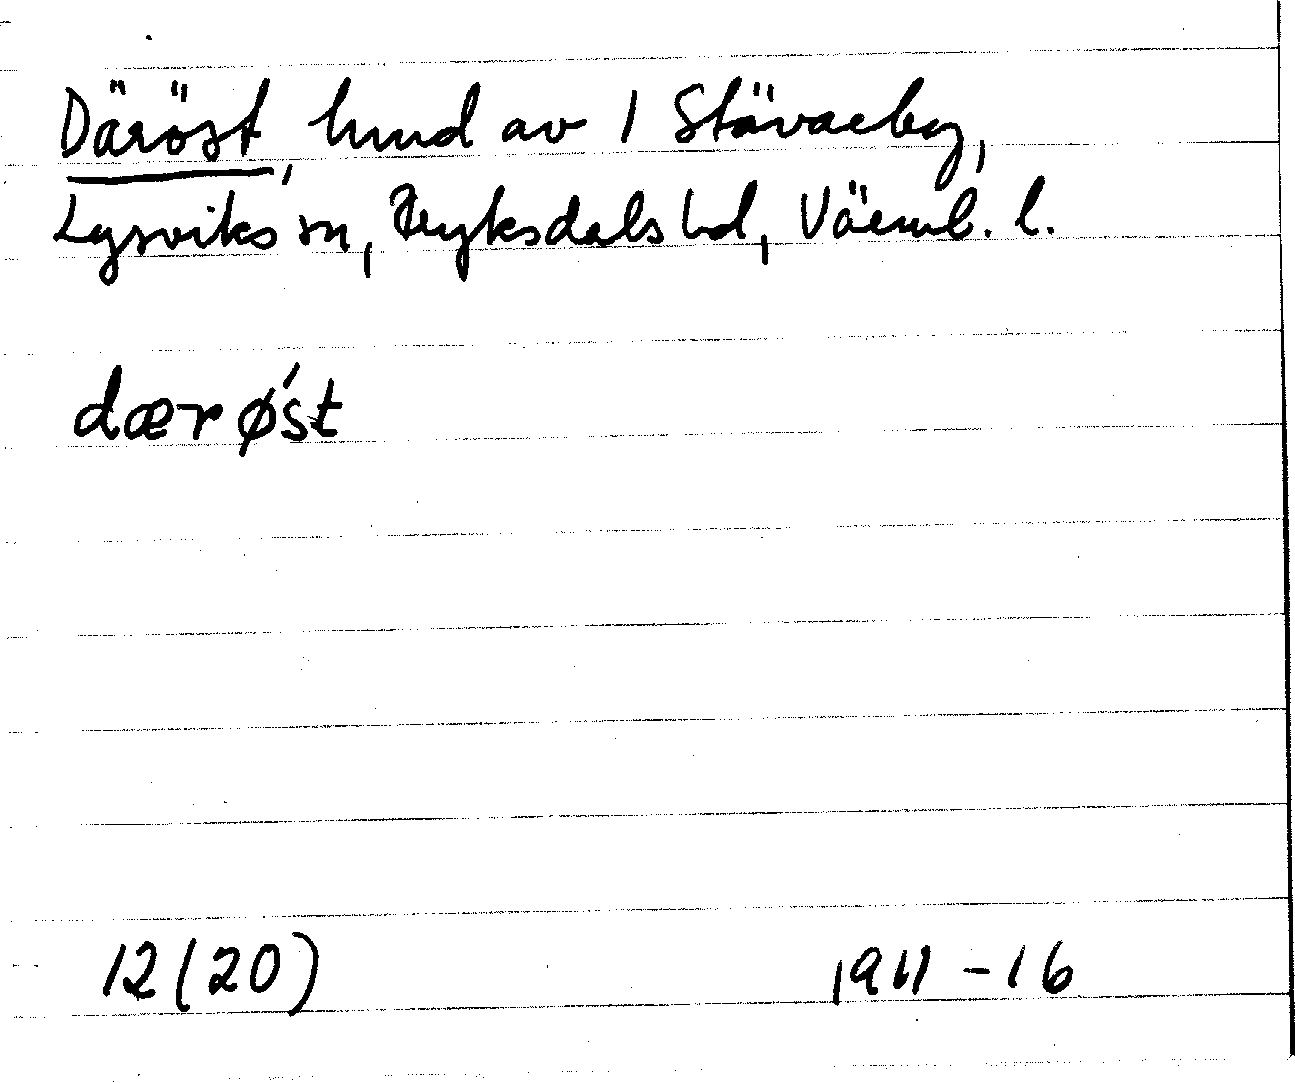 Däröst, hmd av 1 Stävaeberg,
Lysviks sn, Fryksdals hd, Värml. l.
dærø´st
12(20) 1911-16